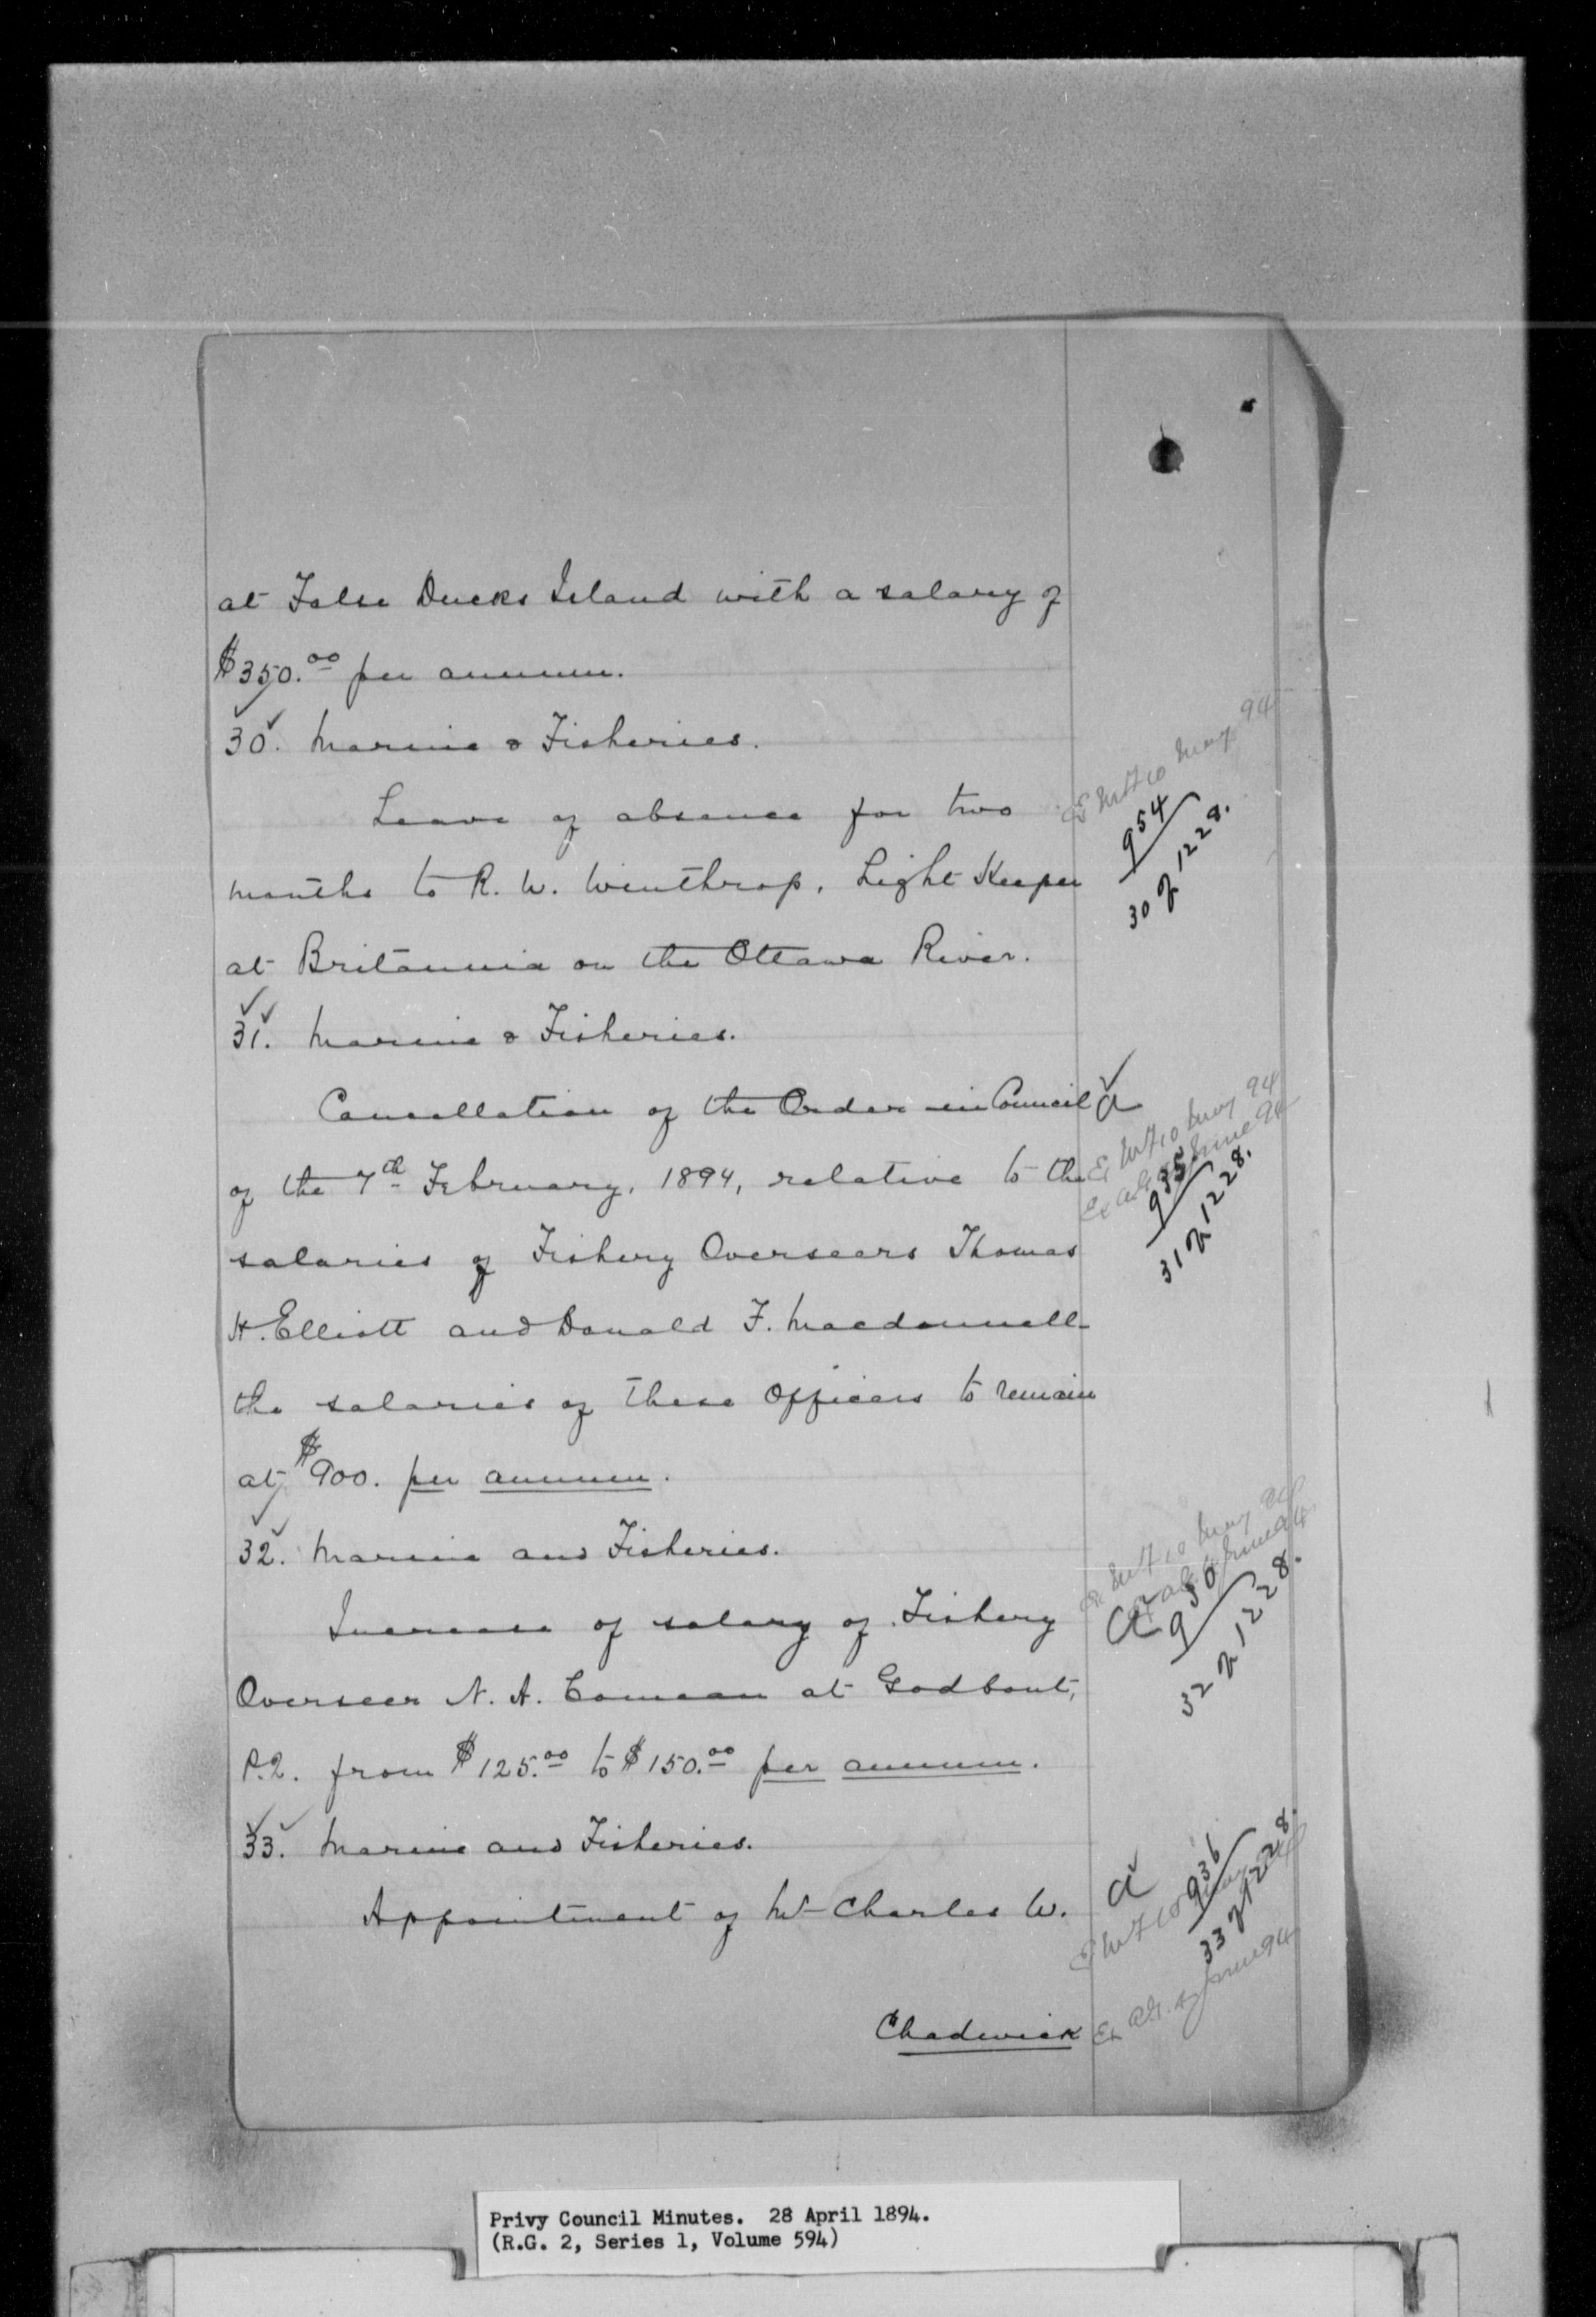 at False Ducks Island with a salary of
$350.00 per annum.
30. Marine & Fisheries.
Leave of absence for two
months to R. W. Winthrop, Light Keeper
at Britannia on the Ottawa River.
31. Marine & Fisheries.
Cancellation of the Order in Council
of the 7th February, 1894, relative to the
salaries of Fishery Overseers Thomas
H. Elliott and Donald F. Macdonnell
the salaries of these Officers to remain
at $900. per annum.
32. Marine and Fisheries.
Increase of salary of Fishery
Overseer N. A. Comeau at Godbout,
P.Q. from $125.00 to $150.00 per annum.
33. Marine and Fisheries.
Appointment of Mr Charles W.
Chadwick
10 May 94
954
30 of 1228.
a
10 May 94
June 94
935
31 of 1228.
10 May 94
June 94
a
930
32 of 1228.
a
936
33 of 1228.
June 94
Privy Council Minutes. 28 April 1894.
(R.G. 2, Series 1, Volume 594)